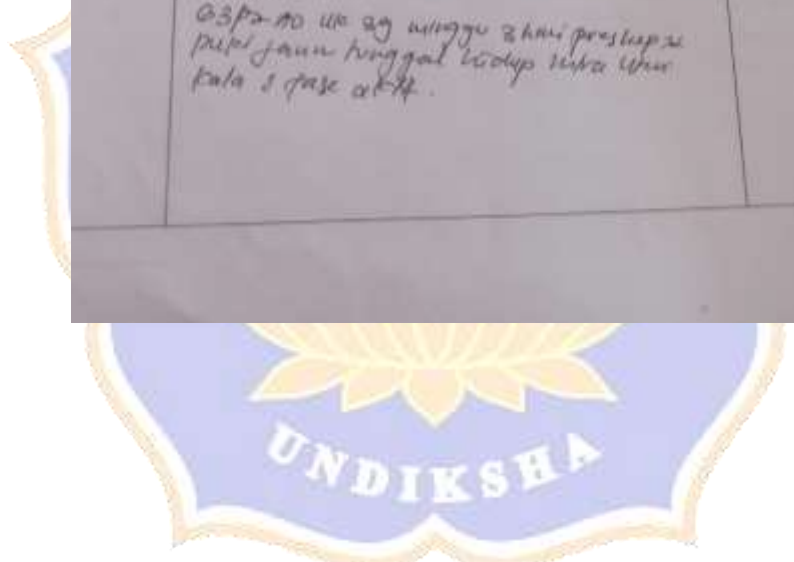 G3P2A0 UK 39 minggu 2 hari preskep U
puki janin tunggal hidup intra uteri
kala I fase aktif.
UNDIKSHA